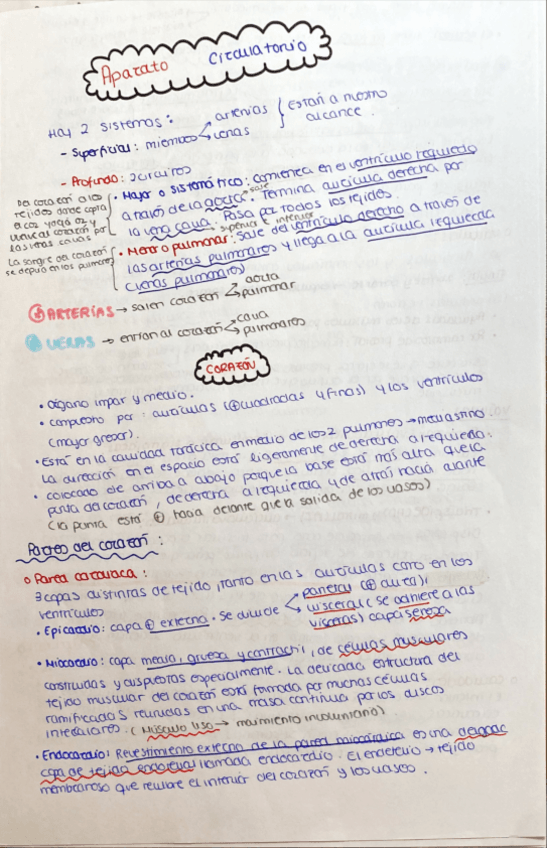 Aparato Circulatorio
Hay 2 sistemas:
- Superficial: miembros
arterias
venas
están a nuestro
alcance.
- Profundo: 2 circuitos
· Mayor o sistemático: comienza en el ventrículo izquierdo
a través de la aorta. Termina aurícula derecha por
sale
la vena cava. Pasa por todos los tejidos.
superior e inferior
· Menor o pulmonar: sale del ventrículo derecho a través de
las arterias pulmonares y llega a la aurícula izquierda
(venas pulmonares)
Del corazón a los
tejidos donde capta
el CO2 y deja O2 y
vuelve al corazón por
las venas cavas
La sangre del corazón
se depura en los pulmones
ARTERÍAS → salen corazón
aorta
pulmonar
VENAS → entran al corazón
cava
pulmonares
CORAZÓN
· Órgano impar y medio.
· Compuesto por: aurículas (⊕ cuadradas y finas) y los ventrículos
(mayor grosor).
· Está en la cavidad torácica en medio de los 2 pulmones → mediastino.
La dirección en el espacio está ligeramente de derecha a izquierda.
· Colocado de arriba a abajo porque la base está más alta que la
punta del corazón, de derecha a izquierda y de atrás hacia delante
(la punta está ⊕ hacia delante que la salida de los vasos)
Partes del corazón:
o Pared cardíaca:
3 capas distintas de tejido, tanto en las aurículas como en los
ventrículos
· Epicardio: capa ⊕ externa. Se divide
parietal (⊕ dura) y
visceral (se adhiere a las
vísceras) capa serosa
· Miocardio: capa media, gruesa y contráctil, de células musculares
construidas y dispuestas especialmente. La delicada estructura del
tejido muscular del corazón está formada por muchas células
ramificadas reunidas en una masa continua por los discos
intercalares. (Músculo liso → movimiento involuntario)
· Endocardio: Revestimiento externo de la pared miocárdica es una delgada
capa de tejido endotelial llamada endocardio. El endotelio → tejido
membranoso que recubre el interior del corazón y los vasos.